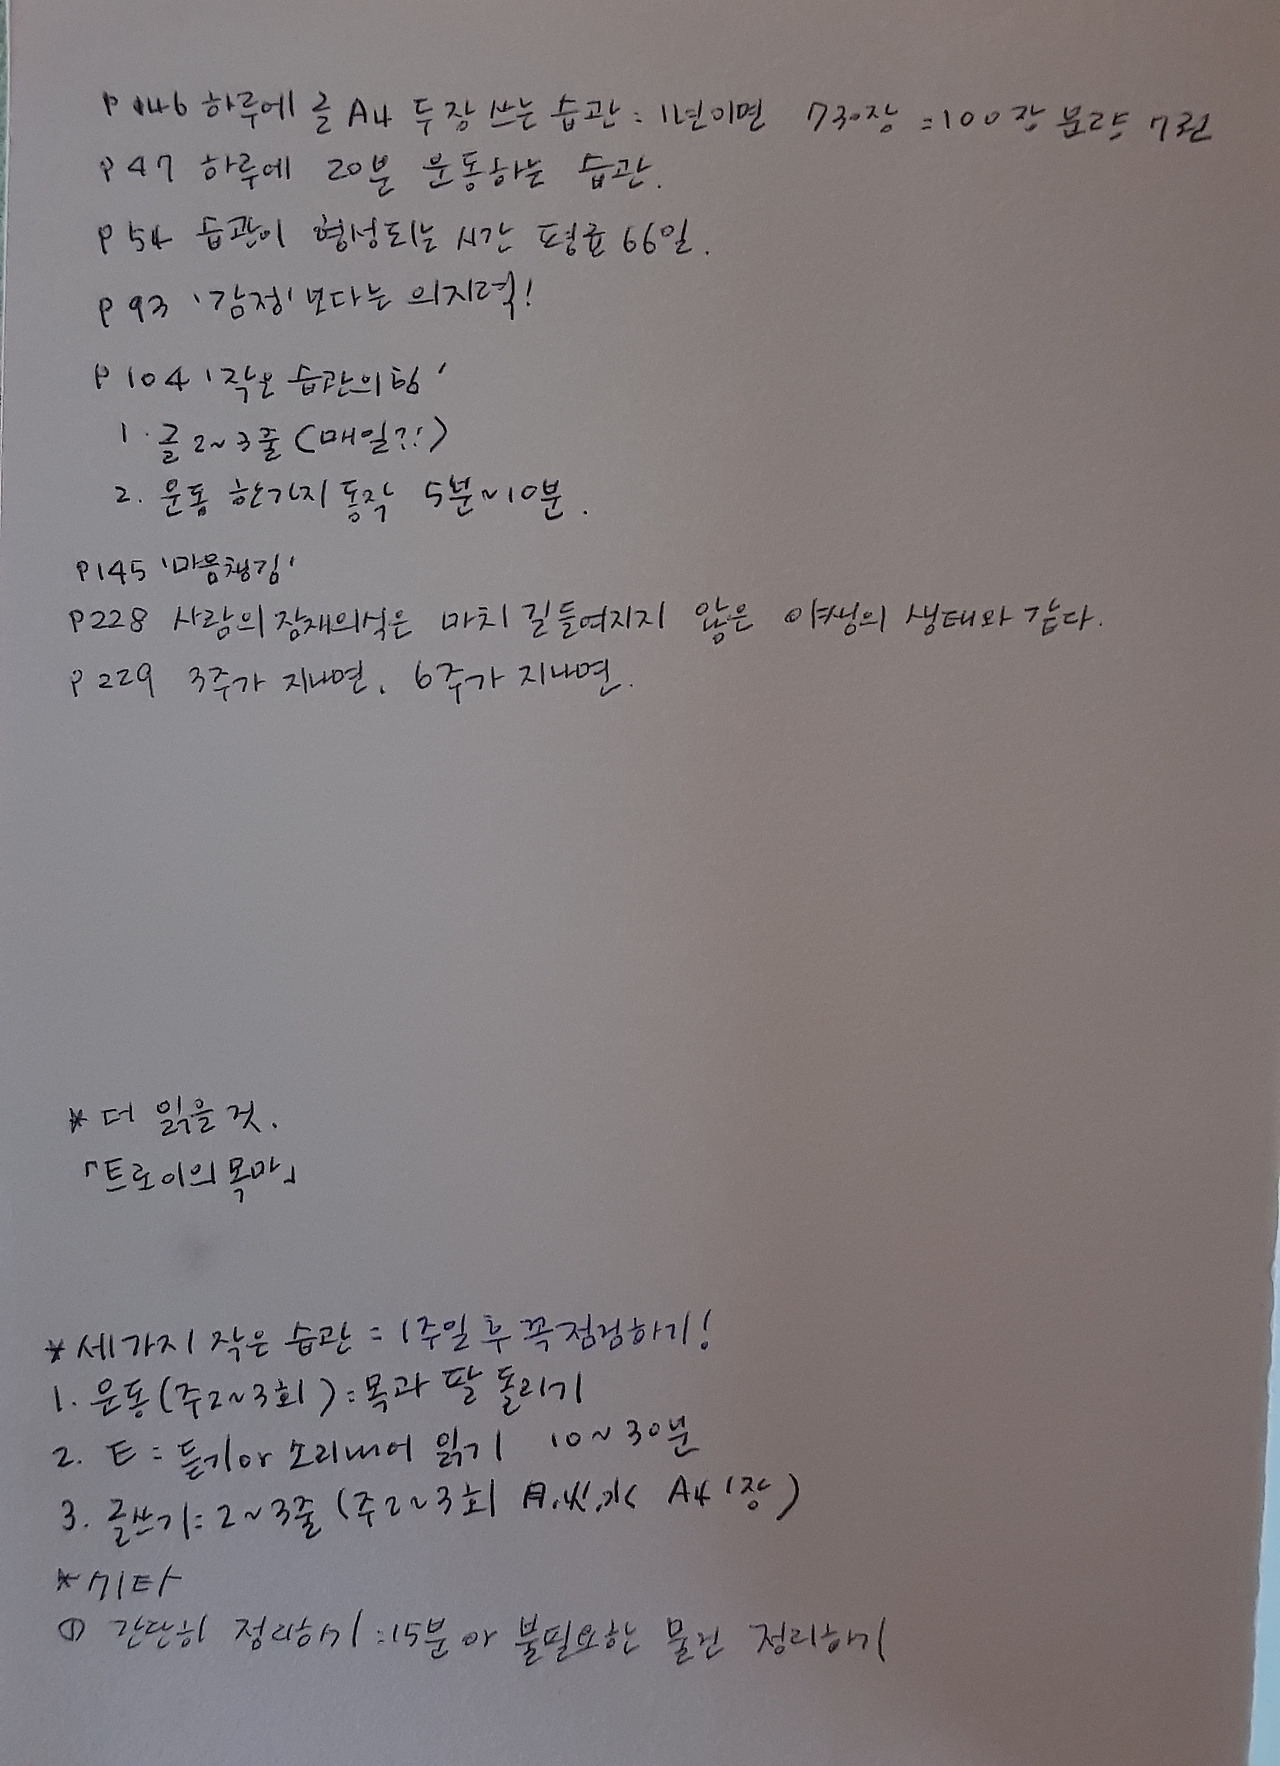 P 46 하루에 글 A4 두장 쓰는 습관 : 1년이면 730장 =100장 분량 7권
P 47 하루에 20분 운동하는 습관.
P 54 습관이 형성되는 시간 평균 66일.
P 93 '감정'보다는 의지력!
P 104 '작은 습관의 힘'
1. 글 2~3줄 (매일?!)
2. 운동 한가지 동작 5분~10분.
P145 '마음챙김'
P228 사람의 잠재의식은 마치 길들여지지 않은 야생의 생태와 같다.
P 229 3주가 지나면, 6주가 지나면.
* 더 읽을 것.
「트로이의 목마」
* 세가지 작은 습관 = 1주일 후 꼭 점검하기!
1. 운동(주2~3회) : 목과 팔 돌리기
2. E = 듣기or 소리내어 읽기 10~30분
3. 글쓰기 : 2~3줄 (주2~3회 月,火,水 A4 1장)
* 기타
① 간단히 정리하기 : 15분 or 불필요한 물건 정리하기